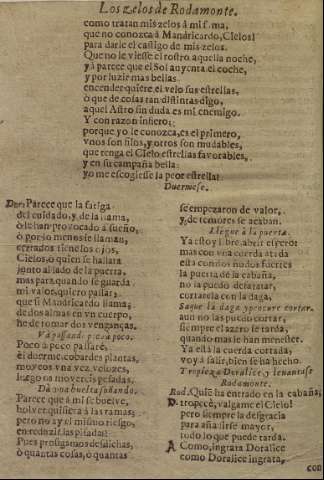 Los zelos de Rodamonte.
como tratan mis zelos à mi fama,
que no conozca à Mandricardo, Cielos!
para darle el castigo de mis zelos.
Que no le viesse el rostro aquella noche,
yà parece que el Sol ayunta el coche,
y por luzir mas bellas
encender quiere el velo sus estrellas,
ò que de cosas tan distintas digo,
aquel Astro sin duda es mi enemigo.
Y con razon infiero;
porque yo le conozca, es el primero,
vnos son fixos, y otros son mudables,
que tenga el Cielo estrellas favorables,
y en su campaña bella
yo me escogiesse la peor estrella!
Duermese.
Parece que la fatiga
del cuidado, y de la llama,
ò le han provocado à sueño,
ò por lo menos le llaman,
cerrados tiene los ojos,
Cielos, ò quien se hallara
junto al lado de la puerta,
mas para quando se guarda
mi valor, quiero passar;
que si Mandricardo llama,
de dos almas en vn cuerpo,
he de tomar dos venganças.
Và passando poco à poco.
Poco à poco passarè,
èl duerme, cobardes plantas,
moveos vna vez velozes,
luego no moverès pesadas.
Dà vna buelta soñando.
Parece que à mi se buelve,
bolver quisiera à las ramas;
pero no ay el mismo riesgo,
en reduzir las pisadas?
Pues prosigamos desdichas,
ò quantas cosas, ò quantas
se empezaron de valor,
y de temores se acaban.
Llegue à la puerta.
Ya estoy libre, abrir espero;
mas con vna cuerda atada
està con dos nudos fuertes
la puerta de la cabaña,
no la puedo desatar,
cortarela con la daga,
Saque la daga y procure cortar.
aun no las puedo cortar,
siempre el azero se tarda,
quando mas le han menester.
Ya està la cuerda cortada,
voy à salir, bien se ha hecho.
Tropieza Doralice, y levantase
Rodamonte.
Rod. Quiè ha entrado en la cabaña;
D. tropecè, valgame el Cielo!
pero siempre la desgracia
para añadirse mayor,
todo lo que puede tarda.
A Como, ingrata Doralice
como Doralice ingrata,
con